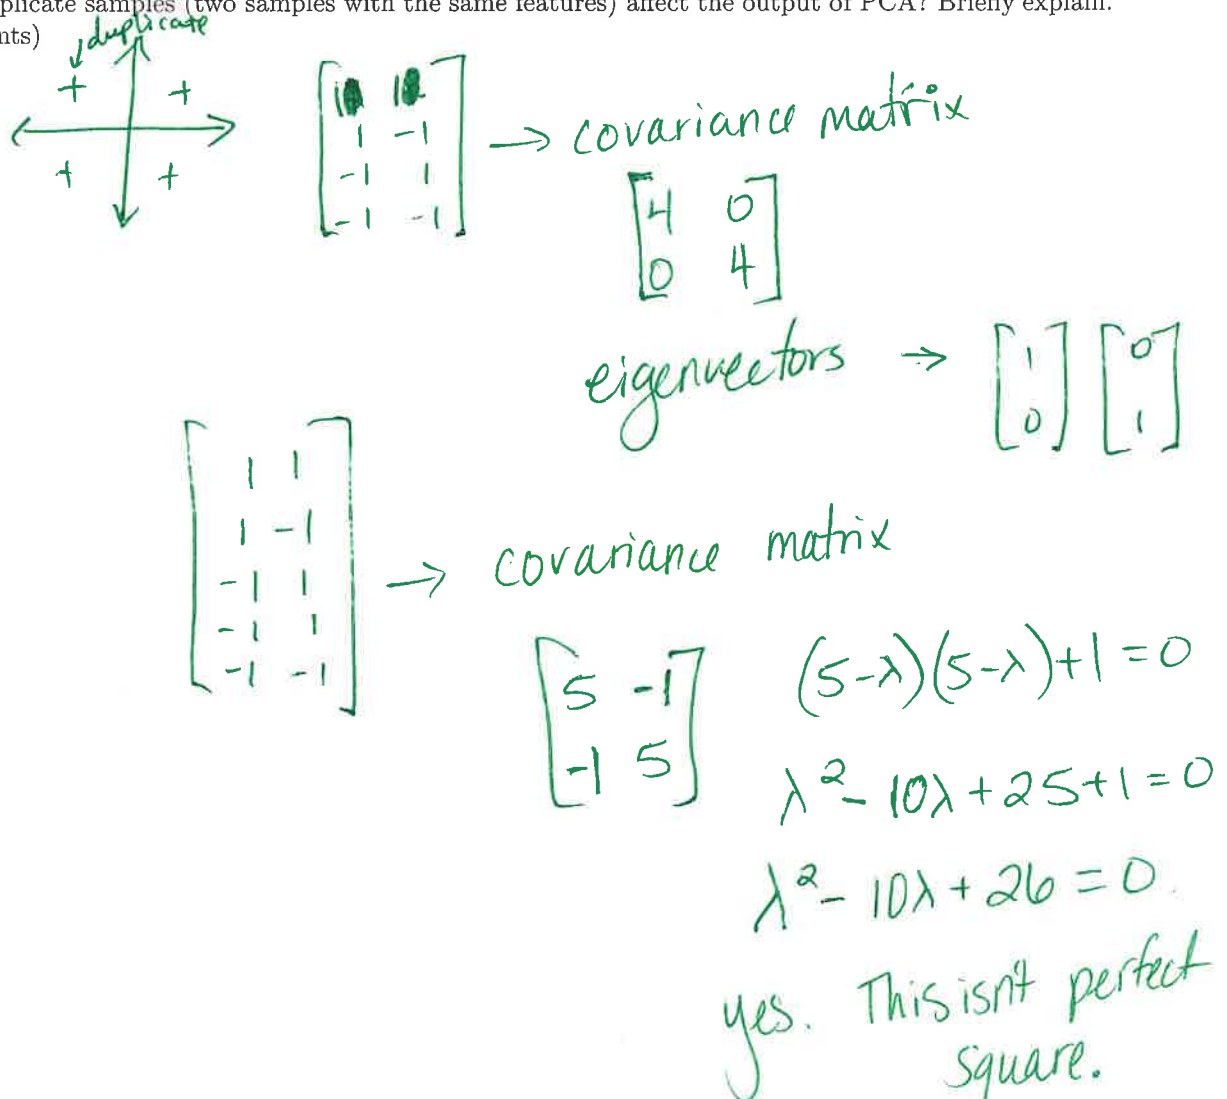 plicate samples (two samples with the same features) affect the output of PCA? Briefly explain.
nts)
duplicate
+ +
+ +
1 -1
-1 1
-1 -1
→ covariance matrix
4 0
0 4
eigenvectors →
1
0
0
1
1 1
1 -1
-1 1
-1 1
-1 -1
→ covariance matrix
5 -1
-1 5
(5-λ)(5-λ)+1=0
λ²-10λ+25+1=0
λ²-10λ+26=0
yes. This isn't perfect
square.